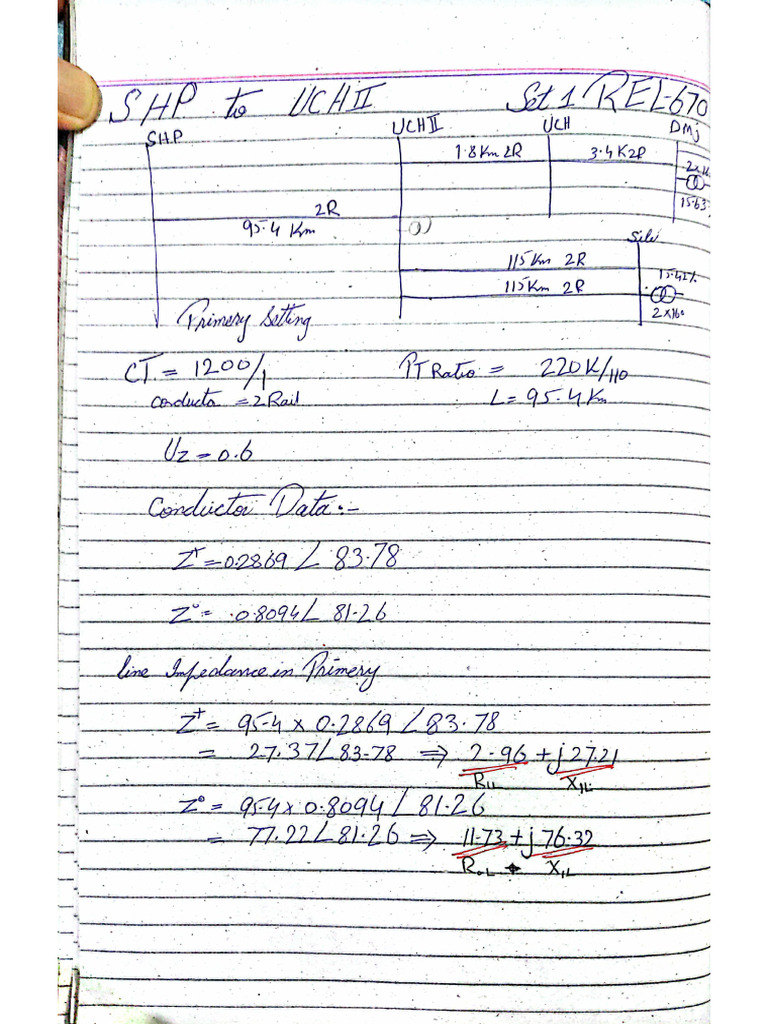 SHP to UCHII Set 1 REL-670
SHP UCHII UCH DMj
1.8Km 2R 3.4K2R
15.63
2R
95.4 Km
115Km 2R
115Km 2R 15.42%
2x160
Primery Setting
CT = 1200/1 PT Ratio = 220K/110
conducto = 2 Rail L = 95.4 Km
Uz = 0.6
Conductor Data:-
Z⁺ = 0.2869 ∠ 83.78
Z⁰ = 0.8094 ∠ 81.26
line Impedance in Primery
Z⁺ = 95.4 x 0.2869 ∠ 83.78
= 27.37 ∠ 83.78 ⇒ 2.96 + j 27.21
R1L X1L
Z⁰ = 95.4 x 0.8094 ∠ 81.26
= 77.22 ∠ 81.26 ⇒ 11.73 + j 76.32
R0L X1L